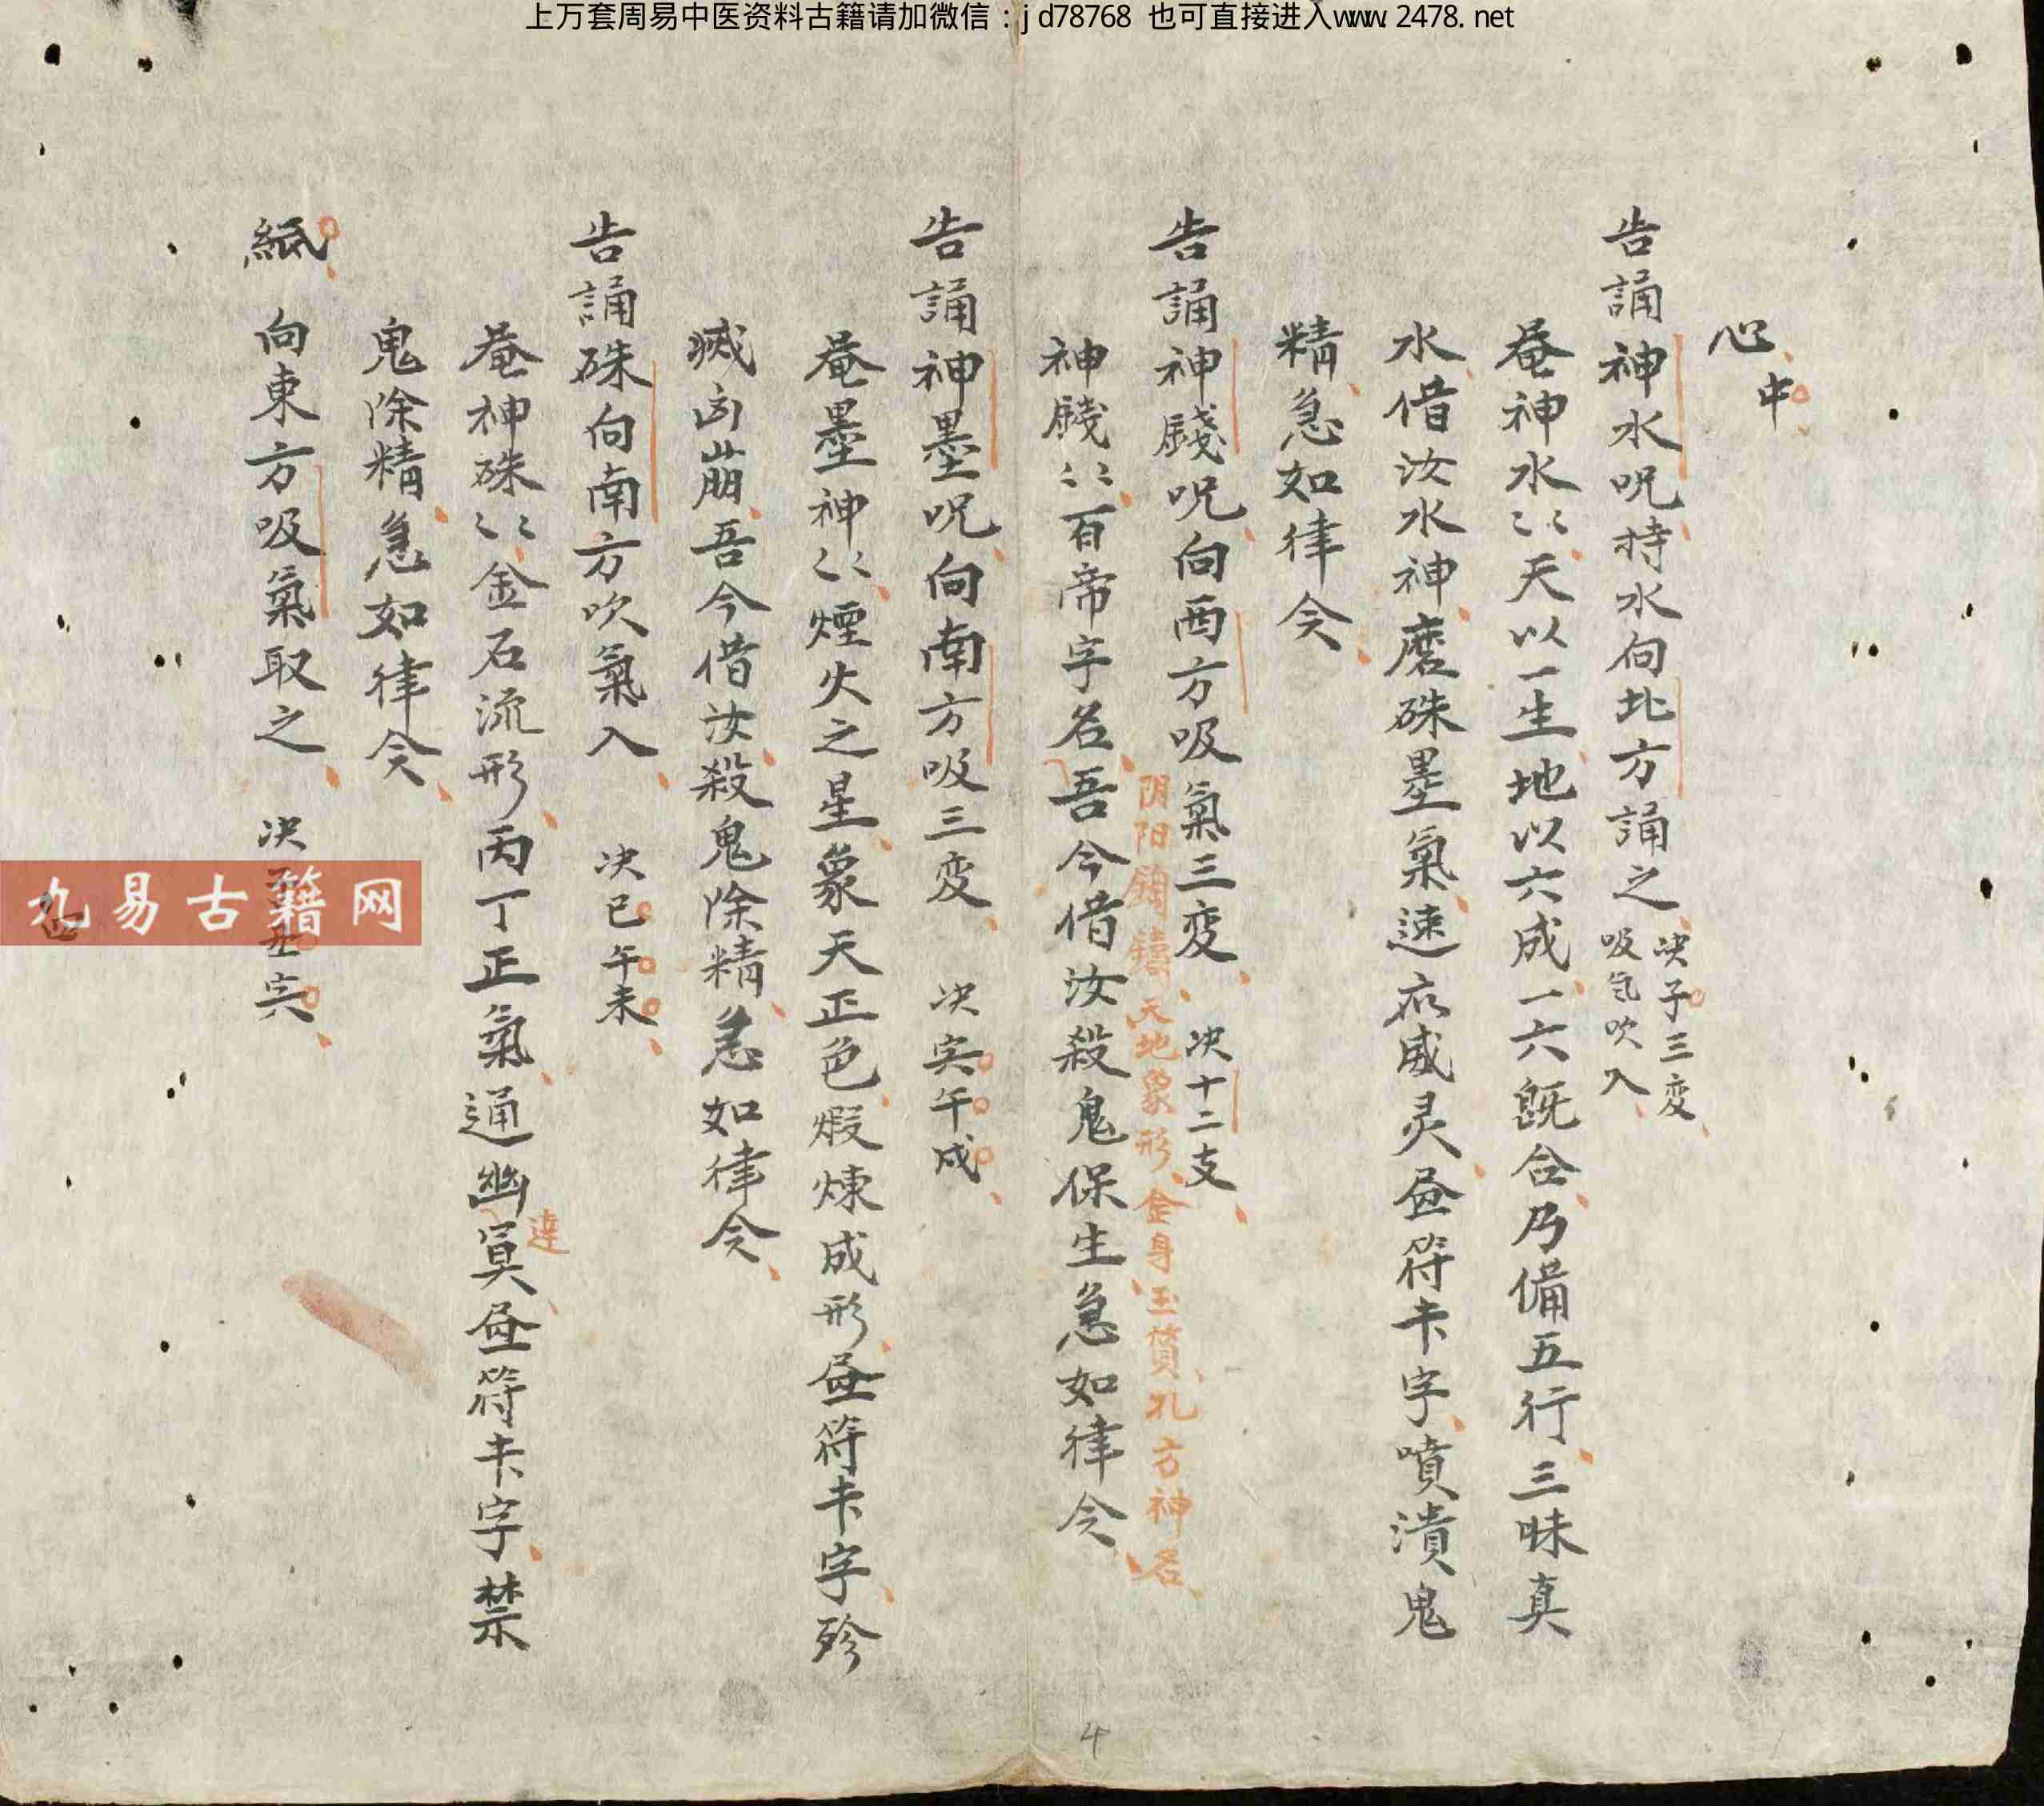 上万套周易中医资料古籍请加微信：jd78768 也可直接进入www.2478.net
心中
告誦神水呪持水向北方誦之 决子三変
吸气吹入
奄神水〻天以一生地以六成一六旣合乃備五行三昧真
水借汝水神磨硃墨氣速应威灵𤰱符卡字噴潰鬼
精急如律令
告誦神醆呪向西方吸氣三変 决十二支
阴阳鑄天地象形金身玉質孔方神名
神醆〻百帝字名吾今借汝殺鬼保生急如律令
告誦神墨呪向南方吸三変 决寅午戍
奄墨神〻煙火之星象天正色煆煉成形𤰱符卡字殄
滅凶崩吾今借汝殺鬼除精急如律令
告誦硃向南方吹氣入 决巳午未
奄神硃〻金石流形丙丁正氣通幽冥𤰱符卡字禁
達
鬼除精急如律令
紙 向東方吸氣取之 决丑寅
九易古籍网
4